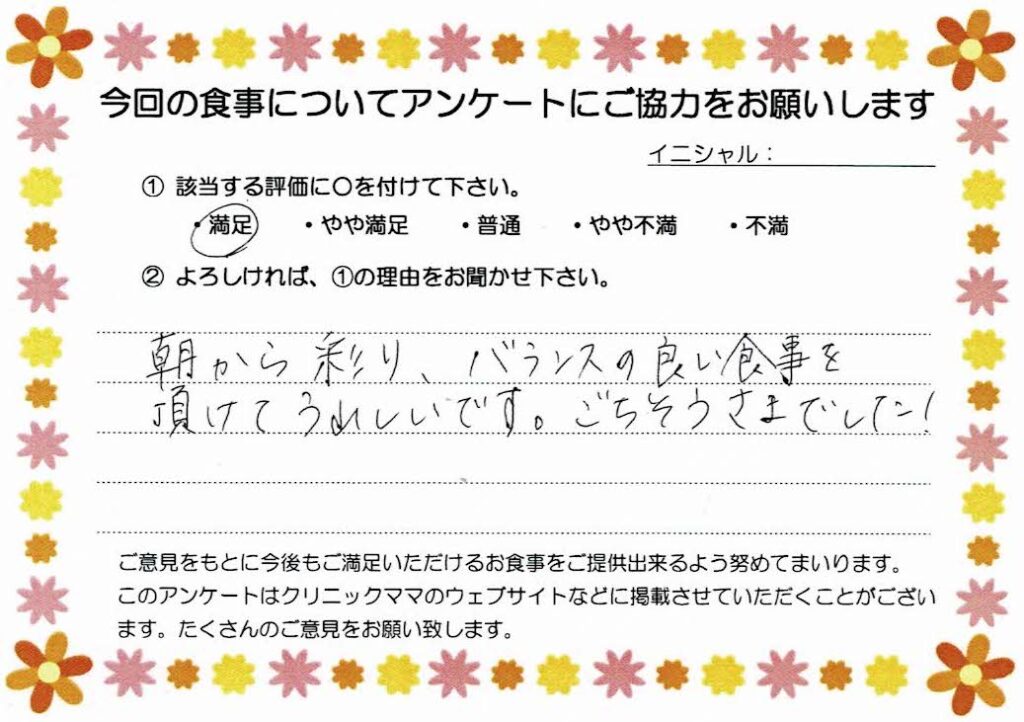 今回の食事についてアンケートにご協力をお願いします
イニシャル：
① 該当する評価に〇を付けて下さい。
・満足 ・やや満足 ・普通 ・やや不満 ・不満
② よろしければ、①の理由をお聞かせ下さい。
朝から彩り、バランスの良い食事を
頂けてうれしいです。ごちそうさまでした！
ご意見をもとに今後もご満足いただけるお食事をご提供出来るよう努めてまいります。
このアンケートはクリニックママのウェブサイトなどに掲載させていただくことがござい
ます。たくさんのご意見をお願い致します。